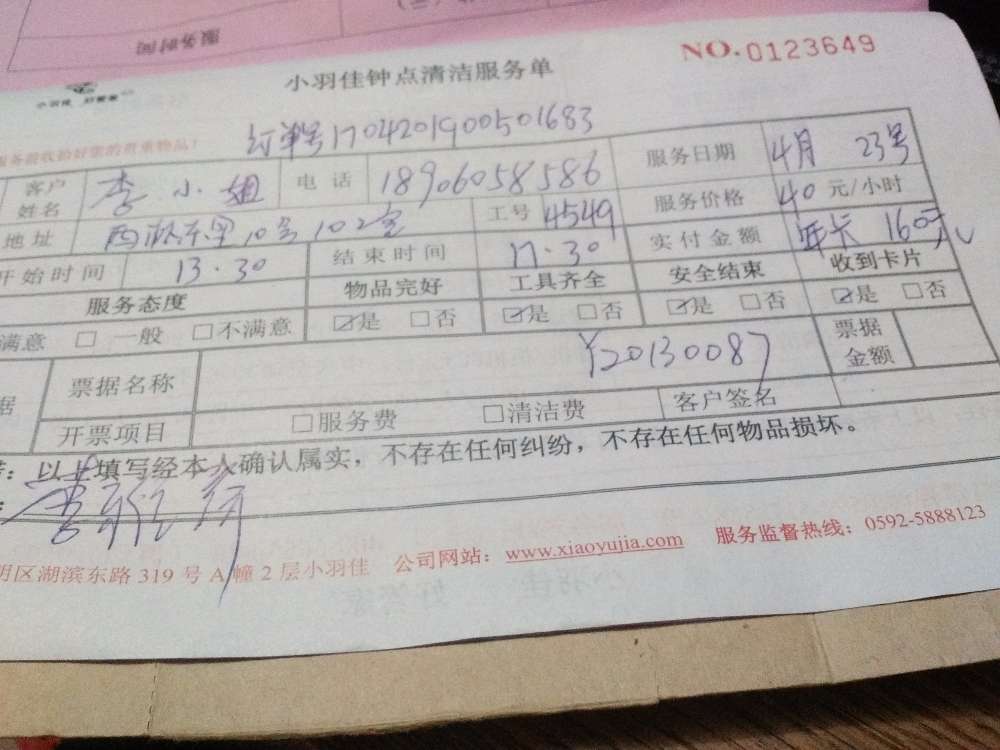 服务时间
小羽佳
小羽佳钟点清洁服务单 NO.0123649
订单号1704201900501683
服务前收拾好您的贵重物品!
客户姓名 李小姐 电话 18906058586 服务日期 4月23号
地址 10号102室 工号 4549 服务价格 40元/小时
开始时间 13.30 结束时间 17.30 实付金额 年卡 160元
服务态度 物品完好 工具齐全 安全结束 收到卡片
满意 □ 一般 □不满意 ☑是 □否 ☑是 □否 ☑是 □否 ☑是 □否
据 票据名称 ¥20130087 票据金额
开票项目 □服务费 □清洁费 客户签名
以上填写经本人确认属实,不存在任何纠纷,不存在任何物品损坏。
明区湖滨东路319号A幢2层小羽佳 公司网站:www.xiaoyujia.com 服务监督热线:0592-5888123